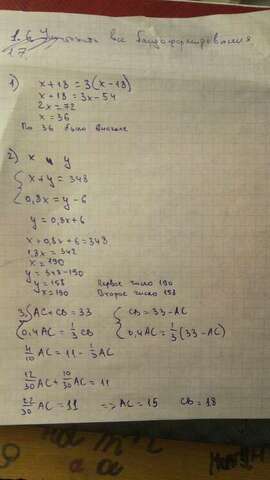 1.6
17.
1)
x+18 = 3(x-18)
x+18 = 3x-54
2x = 72
x = 36
По 36 было вначале
2) x и y
x+y = 348
0,8x = y-6
y = 0,8x+6
x+0,8x+6=348
1,8x = 342
x = 190
y = 348-190
y = 158
Первое число 190
Второе число 158
3. AC+CB = 33
CB = 33-AC
0,4AC = 1/3 CB
0,4AC = 1/3 (33-AC)
4/10 AC = 11 - 1/3 AC
12/30 AC + 10/30 AC = 11
22/30 AC = 11 => AC = 15 CB = 18